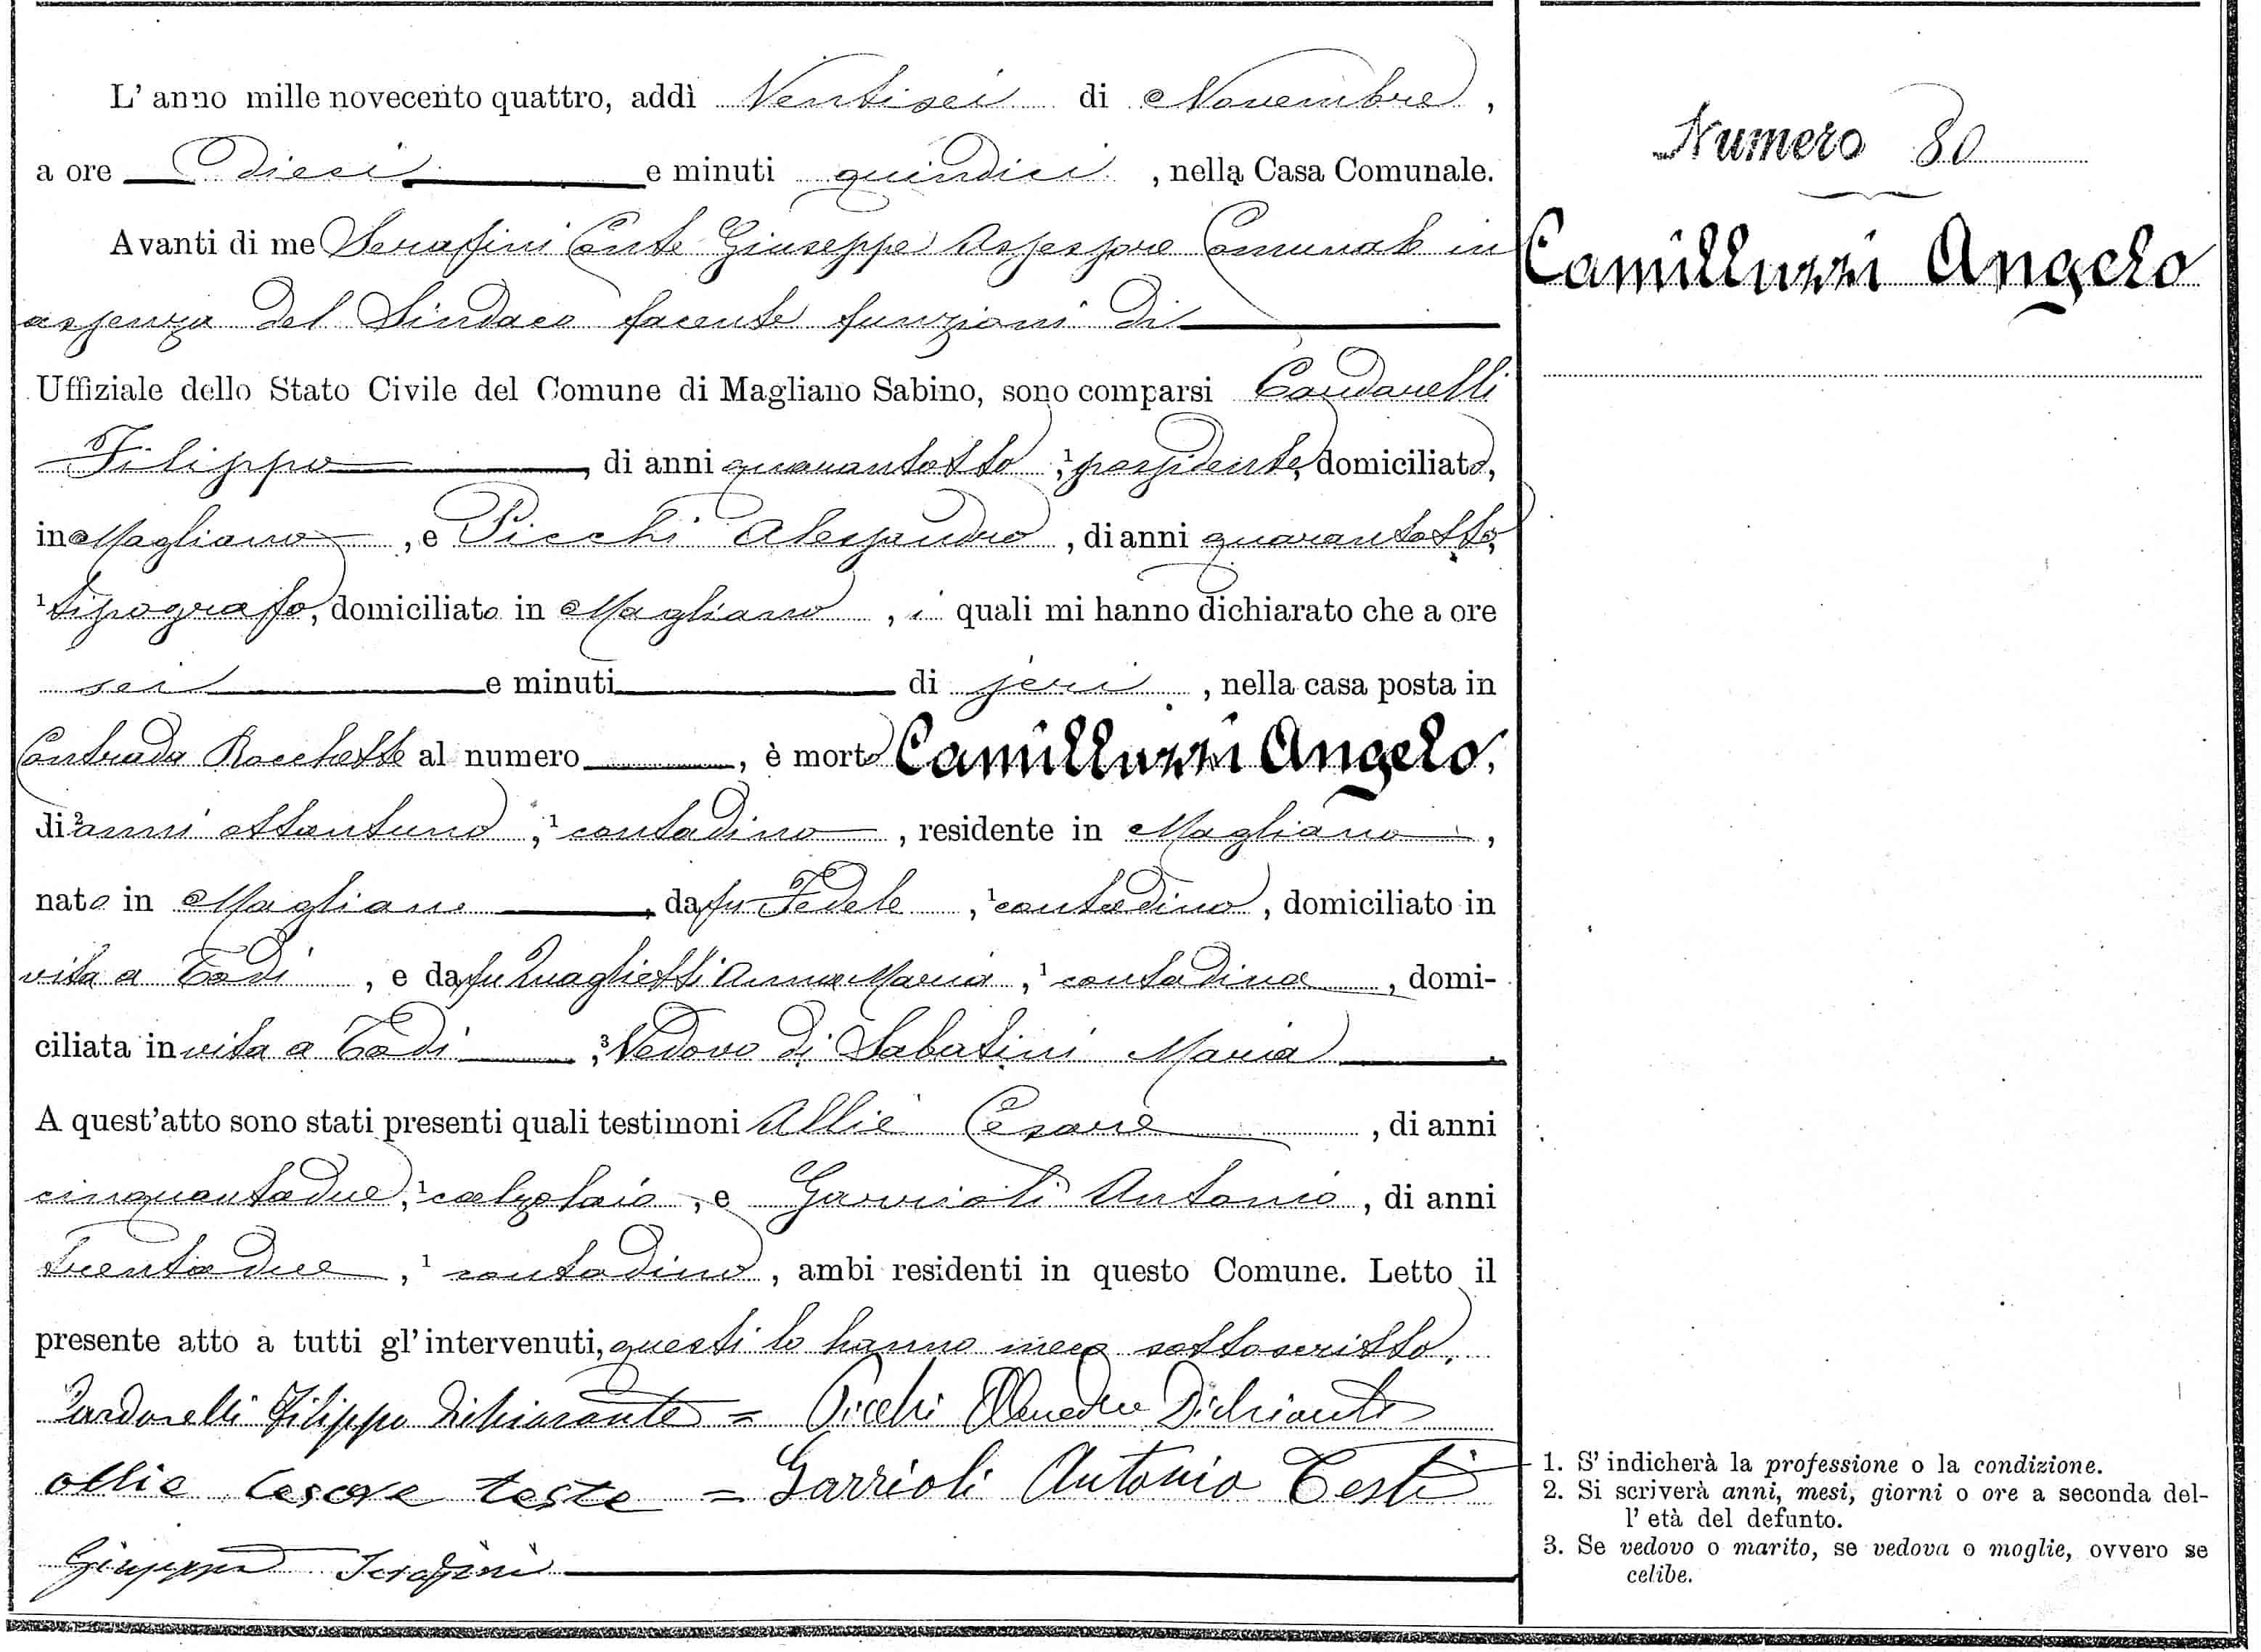 L' anno mille novecento quattro, addì Ventisei di Novembre,
a ore Dieci e minuti quindici, nella Casa Comunale.
Avanti di me Serafini Conte Giuseppe Assessore Comunale in
assenza del Sindaco facente funzioni di
Uffiziale dello Stato Civile del Comune di Magliano Sabino, sono comparsi Cardarelli
Filippo, di anni quarantotto, ¹possidente, domiciliato,
in Magliano, e Picchi Alessandro, di anni quarantotto,
¹tipografo, domiciliato in Magliano, i quali mi hanno dichiarato che a ore
sei e minuti di jeri, nella casa posta in
Contrada Rocchette al numero, è morto Camilluzzi Angelo,
di ²anni ottantuno, ¹contadino, residente in Magliano,
nato in Magliano, da fu Fedele, ¹contadino, domiciliato in
vita a Todi, e da fu Quaglietti Anna Maria, ¹contadina, domi-
ciliata in vita a Todi, ³Vedovo di Sabatini Maria
A quest'atto sono stati presenti quali testimoni Allié Cesare, di anni
cinquantadue, ¹calzolaio, e Garrioli Antonio, di anni
trentadue, ¹contadino, ambi residenti in questo Comune. Letto il
presente atto a tutti gl'intervenuti, questi lo hanno meco sottoscritto.
Cardarelli Filippo dichiarante = Picchi Dichiarante
Allie Cesare teste = Garrioli Antonio Teste
Giuseppe Serafini
Numero 80
Camilluzzi Angelo
1. S'indicherà la professione o la condizione.
2. Si scriverà anni, mesi, giorni o ore a seconda del-
l'età del defunto.
3. Se vedovo o marito, se vedova o moglie, ovvero se
celibe.